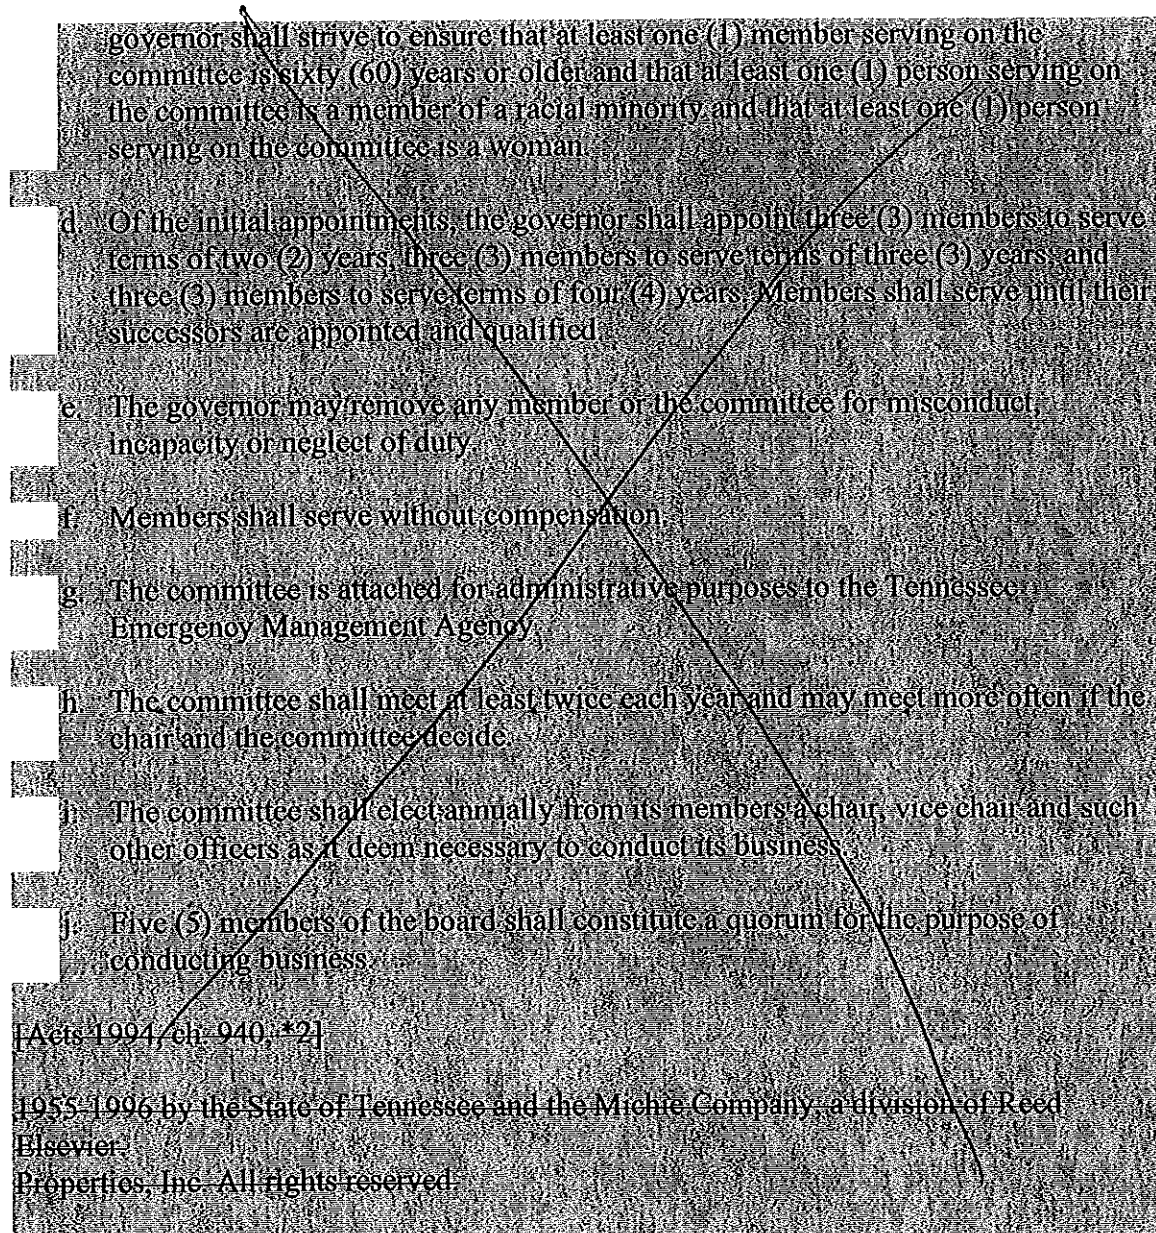 governor shall strive to ensure that at least one (1) member serving on the
committee is sixty (60) years or older and that at least one (1) person serving on
the committee is a member of a racial minority and that at least one (1) person
serving on the committee is a woman.
d. Of the initial appointments, the governor shall appoint three (3) members to serve
terms of two (2) years, three (3) members to serve terms of three (3) years, and
three (3) members to serve terms of four (4) years. Members shall serve until their
successors are appointed and qualified.
e. The governor may remove any member or the committee for misconduct,
incapacity or neglect of duty.
f. Members shall serve without compensation.
g. The committee is attached for administrative purposes to the Tennessee
Emergency Management Agency.
h. The committee shall meet at least twice each year and may meet more often if the
chair and the committee decide.
i. The committee shall elect annually from its members a chair, vice chair and such
other officers as it deem necessary to conduct its business.
j. Five (5) members of the board shall constitute a quorum for the purpose of
conducting business.
[Acts 1994, ch. 940, *2]
1955-1996 by the State of Tennessee and the Michie Company, a division of Reed
Elsevier.
Properties, Inc. All rights reserved